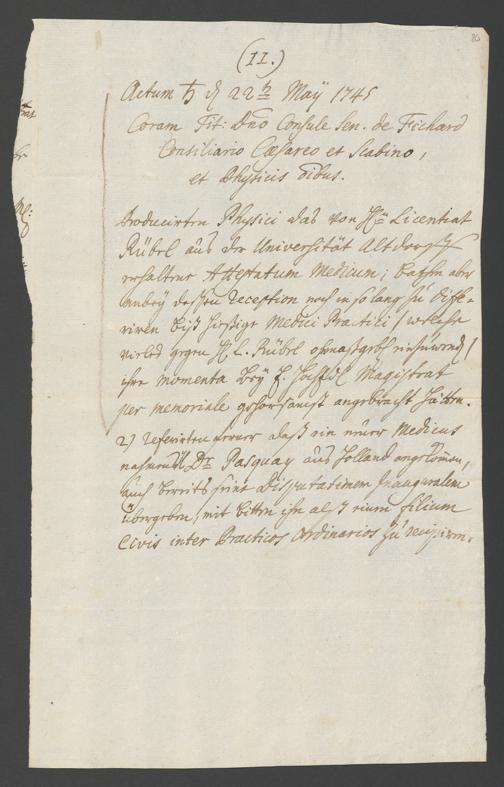 80
(11.)
Actum ♄ d 22ten Maÿ 1745
Coram Tit: Dno Consule Sen. de Fichard
Consiliario Cæsareo et Scabino,
et Physicis oibus.
Producirten Physici das von Hn Licentiat
Rübel aus der Universität Altdorff
erhaltene Attestatum Medicum; baten aber
anbeÿ dessen reception noch in so lang zu diffe-
riren biß hiesige Medici Practici / welche
vieles gegen H. L. Rübel einzuwenden /
ihre momenta beÿ E. Magistrat
per memoriale gehorsamst angebracht hätten.
2) referirten ferner daß ein neuer Medicus
nahmens Dr. Pasquay aus Holland angekommen,
auch bereits seine Disputationem Inauguralem
übergeben, mit bitten ihn alß einen filium
Civis inter Practicos Ordinarios zu recipiren.